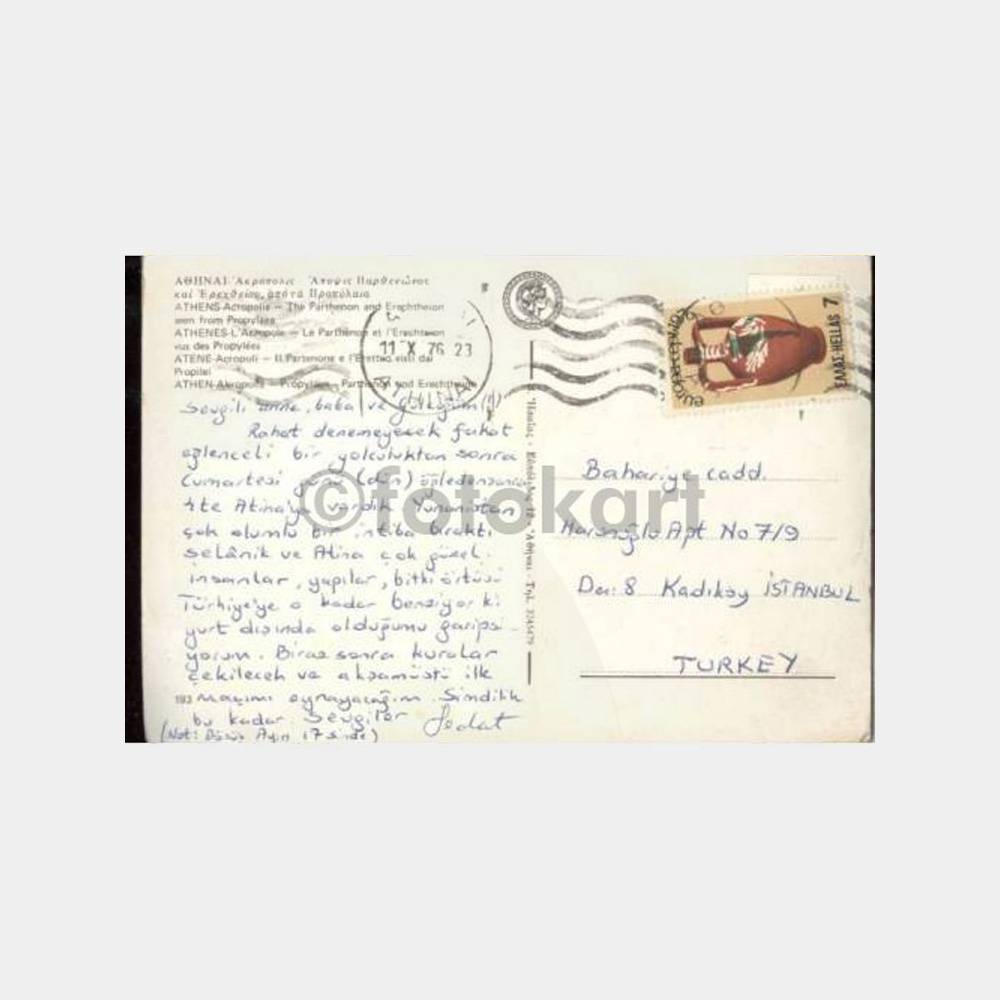 ΑΘΗΝΑΙ-Ἀκρόπολις Ἄποψις Παρθενῶνος
καὶ Ἐρεχθείου, ἀπὸ τὰ Προπύλαια
ATHENS-Acropolis – The Parthenon and Erechtheion
seen from Propylées
ATHENES-L'Acropole – Le Parthénon et l'Erechteion
vus des Propylées
ATENE-Acropoli – Il Partenone e l'Eretteo visti dai
Propilei
ATHEN-Akropolis – Propyläen Parthenon und Erechtheion
11 X 76 23
europa
ΕΛΛΑΣ HELLAS 7
Sevgili anne, baba ve
Rahat denemeyecek fakat
eğlenceli bir yolculuktan sonra
Cumartesi günü (dün) öğledensonra
Atina'ya vardık. Yunanistan
çok olumlu bir intiba bıraktı
Selânik ve Atina çok güzel.
İnsanlar, yapılar, bitki örtüsü
Türkiye'ye o kadar benziyor ki
yurt dışında olduğumu garipsi-
yorum. Biraz sonra kuralar
çekilecek ve akşamüstü ilk
193 maçımı oynayacağım. Şimdilik
bu kadar. Sevgiler Sedat
(Not: Dönüş Ayın 17'sinde)
Ἀθῆναι - Τηλ. 3245479
Bahariye cadd.
Apt No 7/9
Da: 8 Kadıköy İSTANBUL
TURKEY
©fotokart